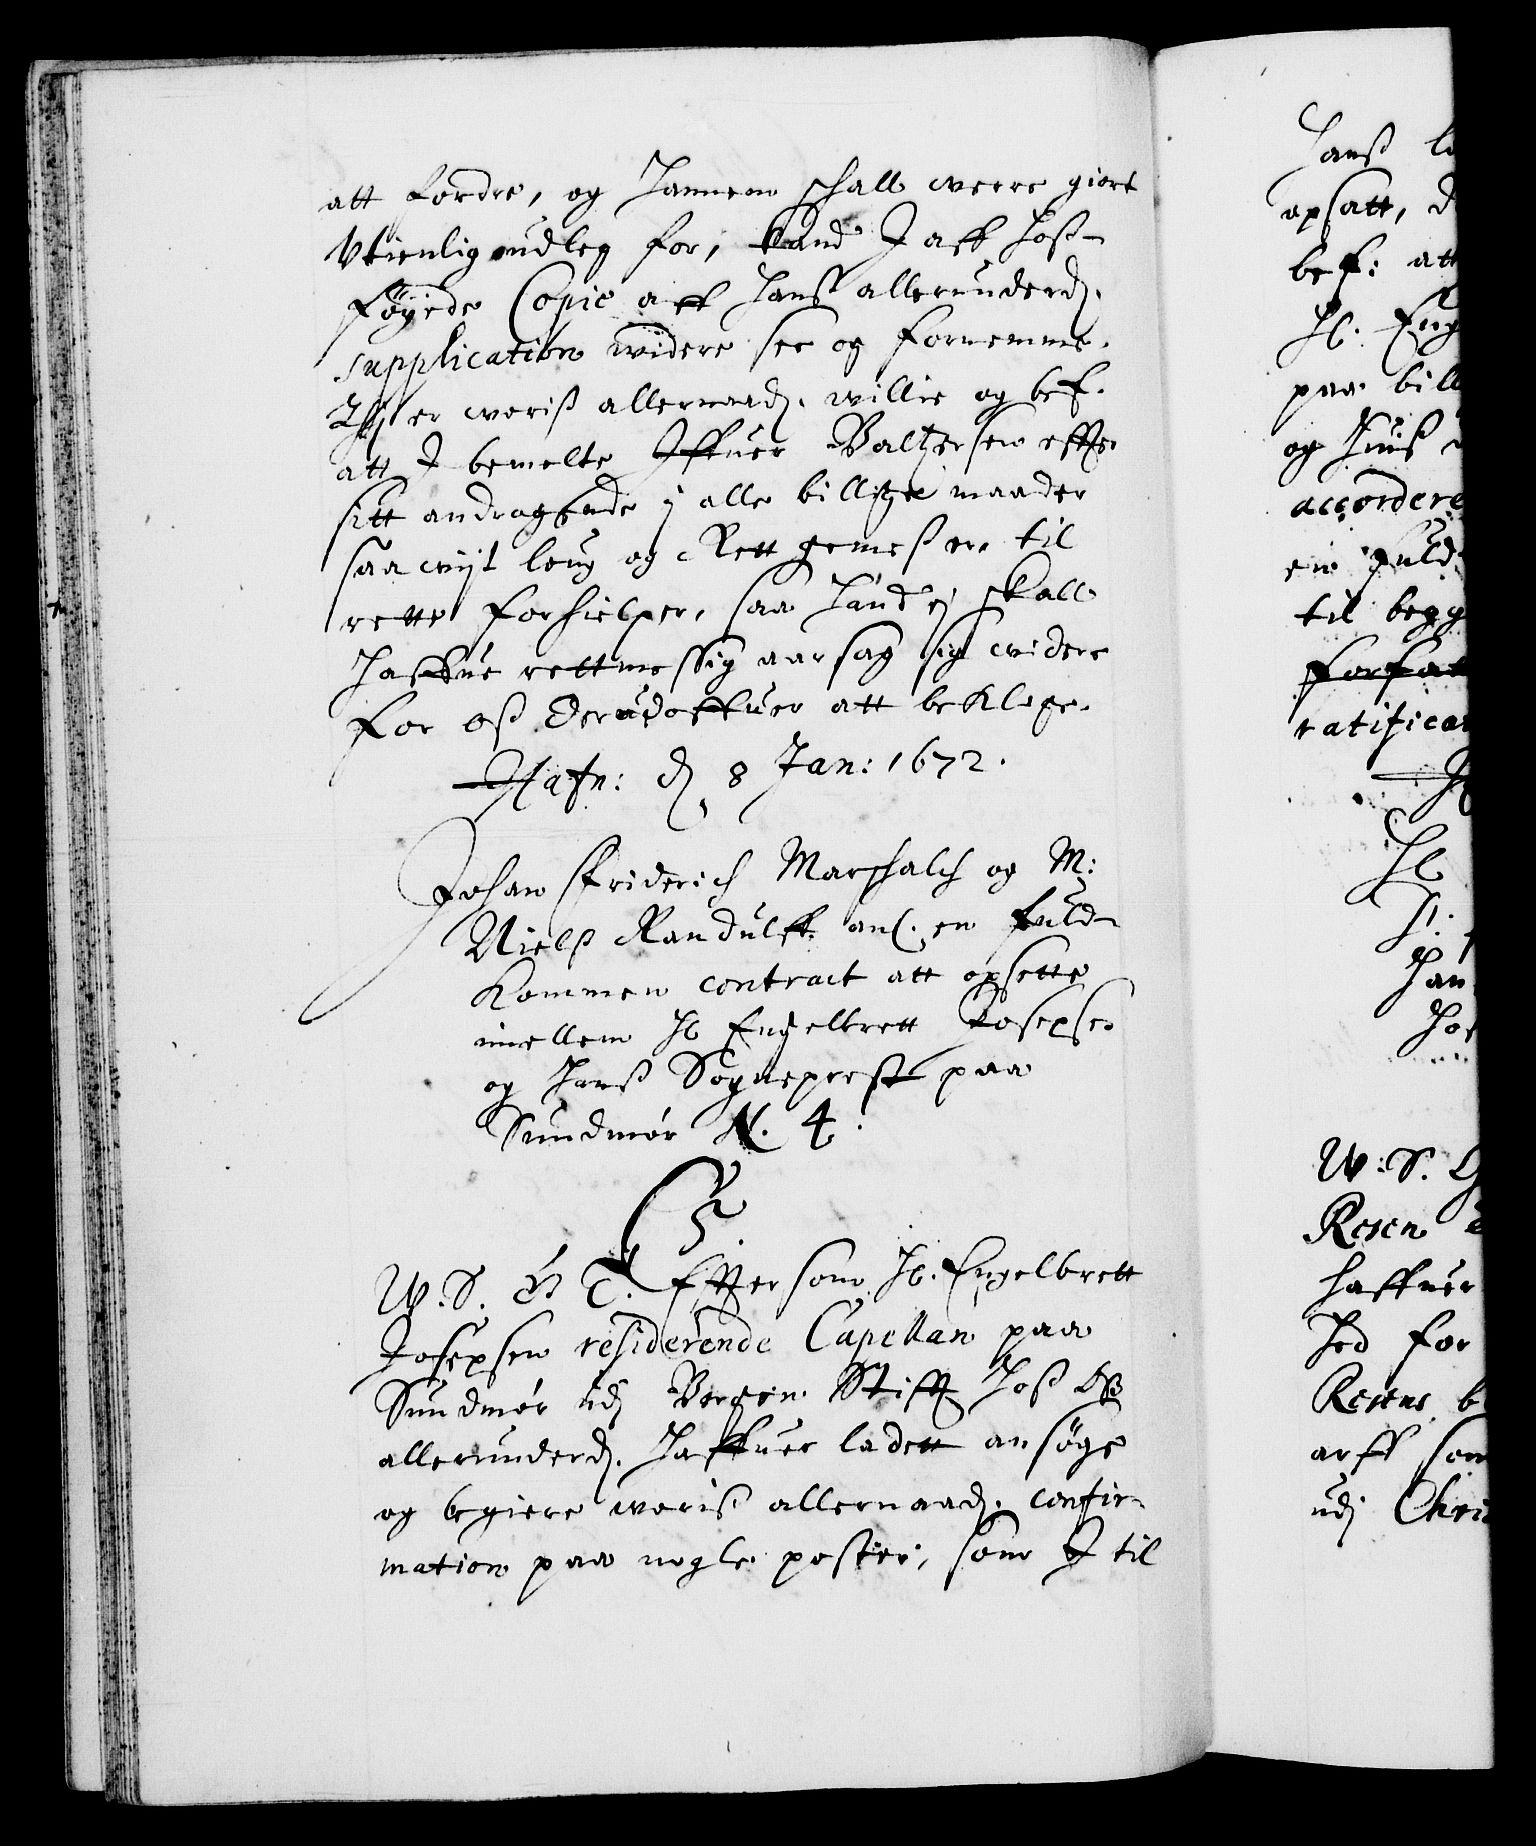 att fordre, og hannem schall were giort
Vtienlig udleg for, kand I aff hoß-
føyede Copie aff hans allerunderd.
supplication widere see og fornemme.
Thj er woriß allernaad. willie og bef.
att I bemelte Iffuer Baltzersen effter
sitt andragende j alle billige maader
saa wijt loug og Rett gemeß er, til
rette forhielper, saa hand ej skall
haffue rettmessig aarsag sig widere
for oß derudoffuer att beklage.
Hafn: d 8 Jan: 1672.
Johan Friderich Marschalch og M:
Nielß Randulff anl. en fuld-
kommen contract att opsette
imellem Hr Engelbrett Josepsen
og hanß Sogneprest paa
Sundmør N. 4.
C5.
W. S. G T. Effter som Hr. Engelbrett
Josepsen residerende Capellan paa
Sundmør udj Bergen Stifft hoß Oß
allerunderd. haffuer ladett ansøge
og begiere woriß allernaad. confir-
mation paa nogle poster, som I til
Hanß
opsatt,
bef: att
Hr. Eng
paa bill
og huuß
accordere
en fuld
til begg
forfat
ratificat
W. S. G
Resen
haffuer
hed for
Resens b
arff som
udj Chri